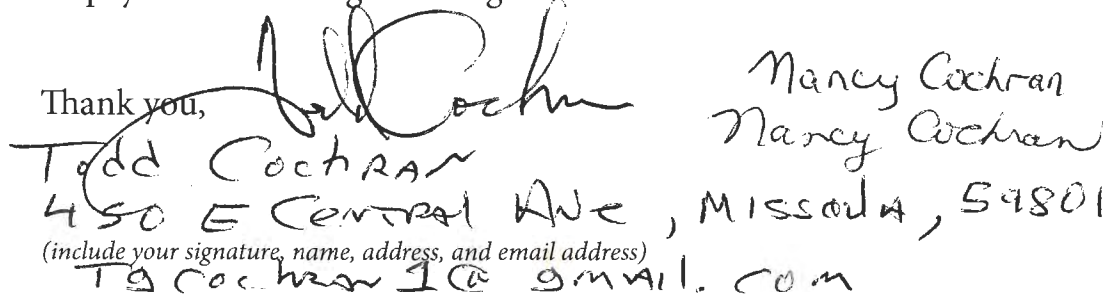 Thank you, Todd Cochran
Nancy Cochran
Nancy Cochran
Todd Cochran
450 E Central Ave, Missoula, 59801
(include your signature, name, address, and email address)
Tgcochran1@gmail.com